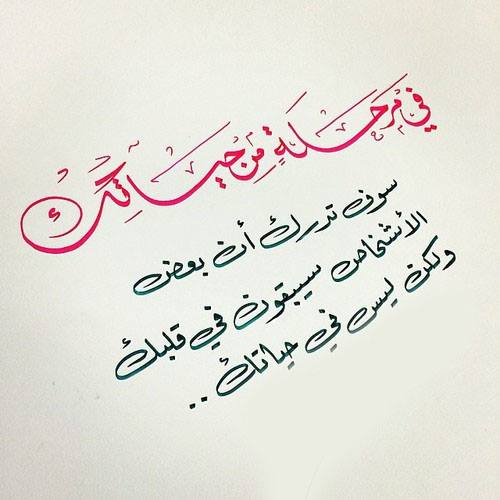 في مرحلة من حياتك
سوف تدرك أن بعض
الأشخاص سيبقون في قلبك
ولكن ليس في حياتك ..